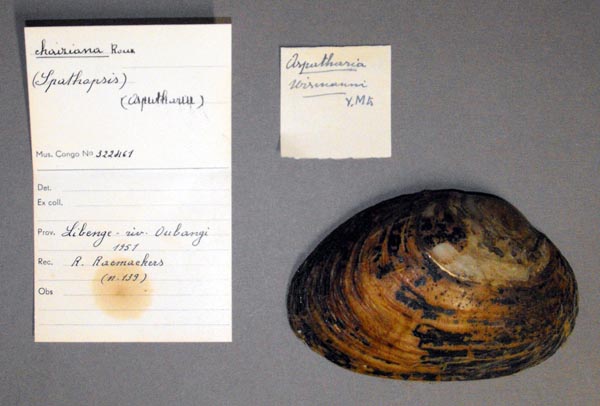 chaiziana Roux
(Spathopsis)
(Aspatharia)
Mus. Congo No 322461
Det.
Ex coll.
Prov. Libenge - riv. Oubangi
1951
Rec. R. Raemaekers
(n. 139)
Obs
Aspatharia
Wismanni
v. Mts